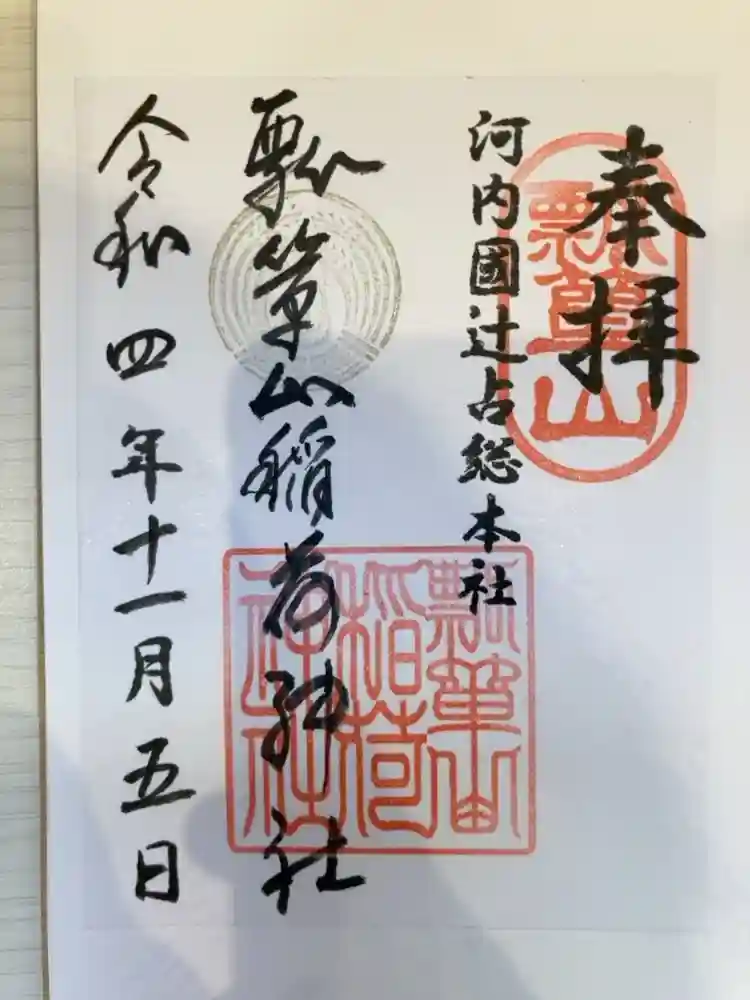 奉拝
瓢箪山
河内國辻占総本社
瓢箪山稲荷神社
瓢箪山
稲荷
神社
令和四年十一月五日